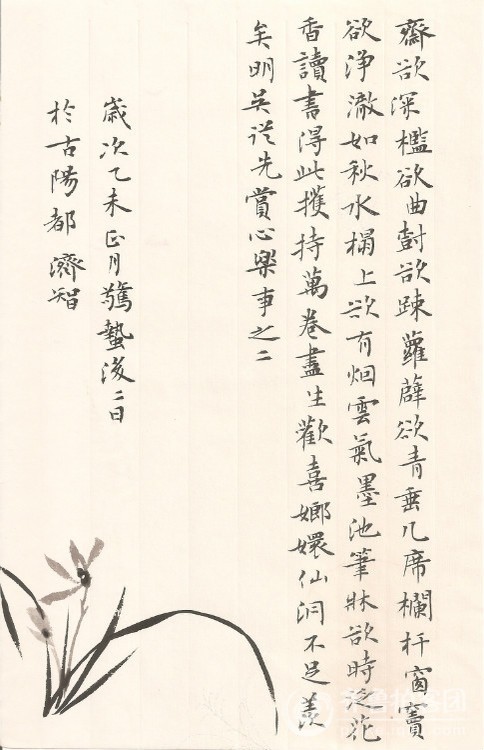 齋欲深檻欲曲尌欲踈蘿薜欲青垂几席欄杆窗竇
欲浄澈如秋水榻上欲有烟雲氣墨池筆牀欲時泛花
香讀書得此擭持萬卷盡生歡喜嫏嬛仙洞不足羨
矣明吳從先賞心樂事之二
歲次乙未正月驚蟄後二日
於古陽都 濟智
齐鲁拍客团